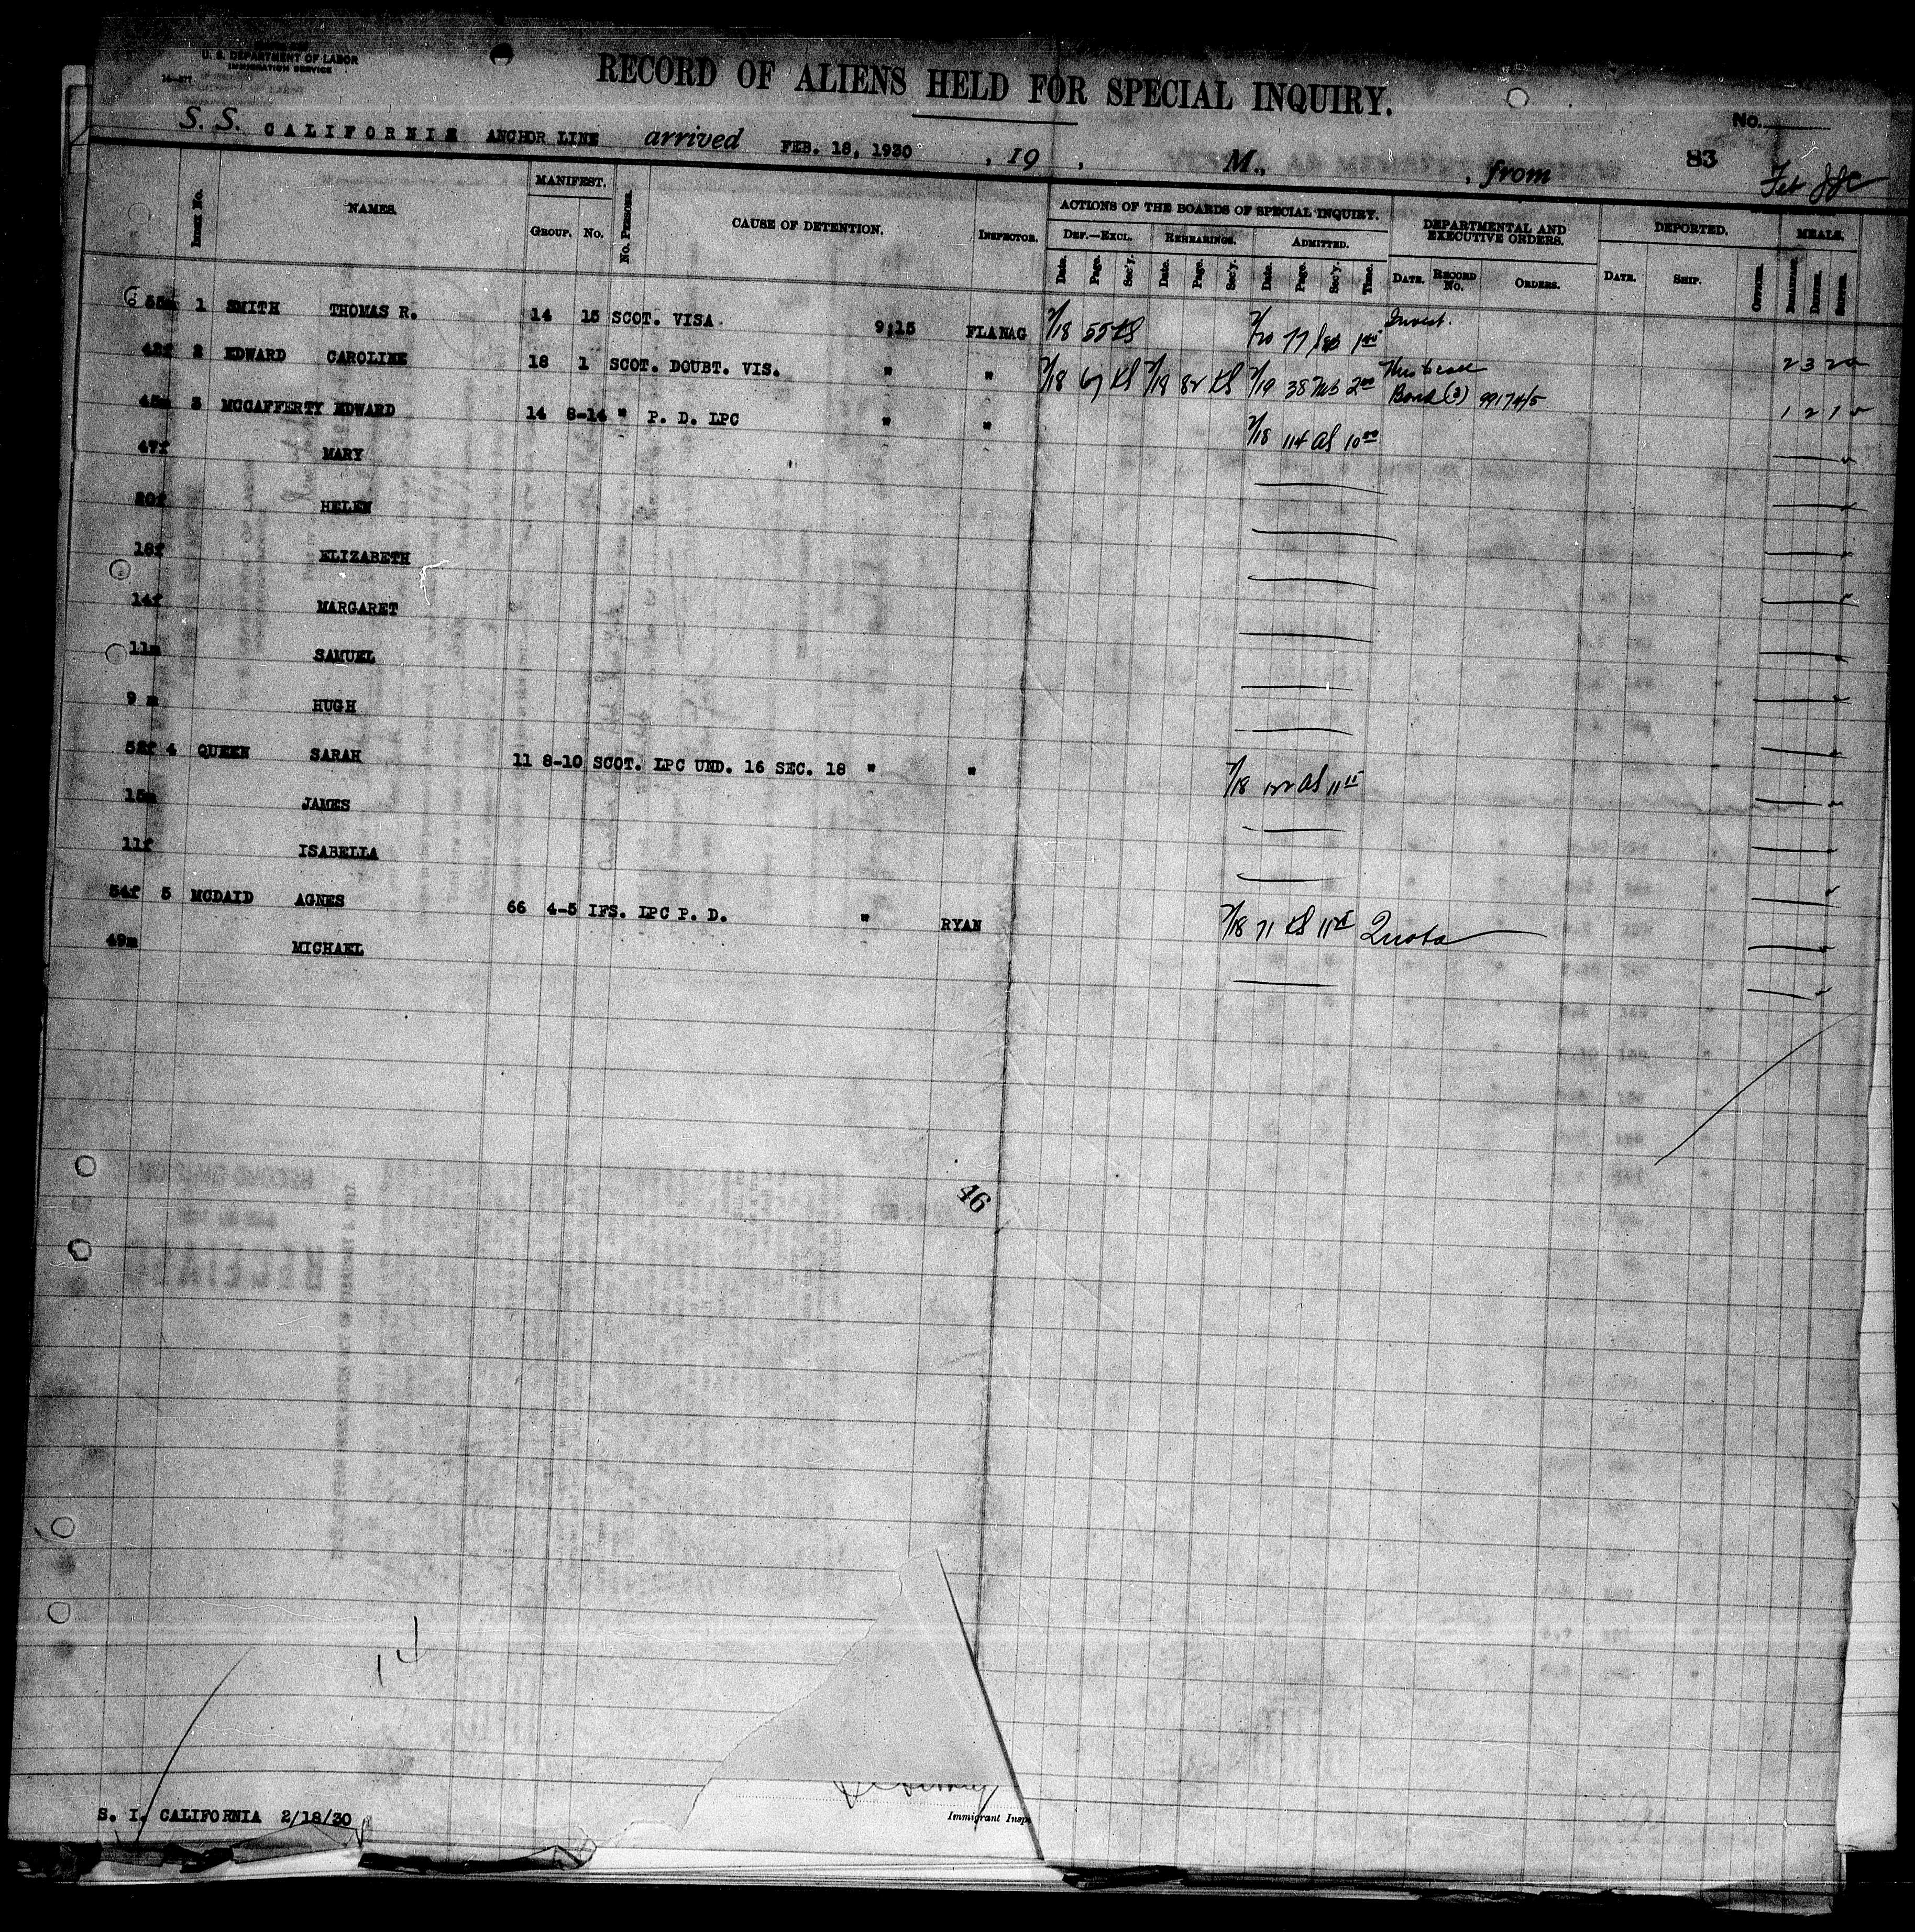 U. S. DEPARTMENT OF LABOR
IMMIGRATION SERVICE
RECORD OF ALIENS HELD FOR SPECIAL INQUIRY.
No.
S. S. CALIFORNIA ANCHOR LINE arrived FEB. 18, 1930 , 19 , M., , from 83
Index No. NAMES. MANIFEST. GROUP. No. No. PERSONS. CAUSE OF DETENTION. INSPECTOR. ACTIONS OF THE BOARDS OF SPECIAL INQUIRY. DEPARTMENTAL AND EXECUTIVE ORDERS. DEPORTED. MEALS.
DEF.—EXCL. REHEARINGS. ADMITTED.
Date. Page. Sec'y. Date. Page. Sec'y. Date. Page. Sec'y. Time. DATE. RECORD No. ORDERS. DATE. SHIP. OFFICER. BREAKFAST. DINNER. SUPPER.
55m 1 SMITH THOMAS R. 14 15 SCOT. VISA 9:15 FLANAG 2/18 55 KS 2/20 77 1 40 Invest. 2 3 2
42f 2 EDWARD CAROLINE 18 1 SCOT. DOUBT. VIS. " " 2/18 67 KS 2/18 82 KS 2/19 38 2 00 Bond (3) 99174/5 1 2 1
45m 3 MCCAFFERTY EDWARD 14 8-14 " P. D. LPC " " 2/18 114 AS 10 00
47f MARY
20f HELEN
18f ELIZABETH
14f MARGARET
11m SAMUEL
9 m HUGH
52f 4 QUEEN SARAH 11 8-10 SCOT. LPC UND. 16 SEC. 18 " " 2/18 122 AS 11 15
15m JAMES
11f ISABELLA
54f 5 MCDAID AGNES 66 4-5 IFS. LPC P. D. " RYAN 2/18 71 KS 11 25 Quota
49m MICHAEL
46
14
S. I. CALIFORNIA 2/18/30
Immigrant Insp